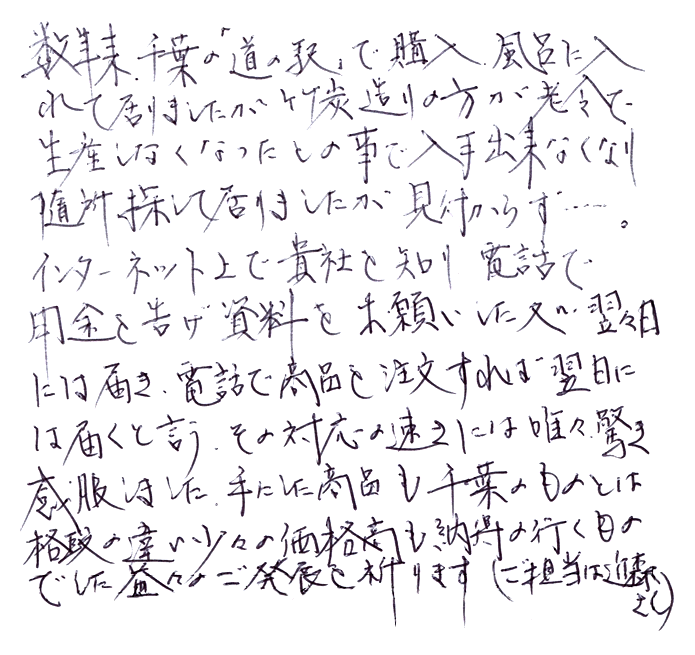 数年来、千葉の「道の駅」で購入、風呂に入
れて居りましたが竹炭造りの方が老令で
生産しなくなったとの事で入手出来なくなり
随所探して居りましたが見付からず……。
インターネット上で貴社を知り電話で
用金を告げ資料をお願いした処、翌々日
には届き、電話で商品を注文すれば翌日に
は届くと言う、その対応の速さには唯々驚き
感服しました、手にした商品も千葉のものとは
格段の違い少々の価格高も納得の行くもの
でした益々のご発展を祈ります(ご担当は進藤
さん)